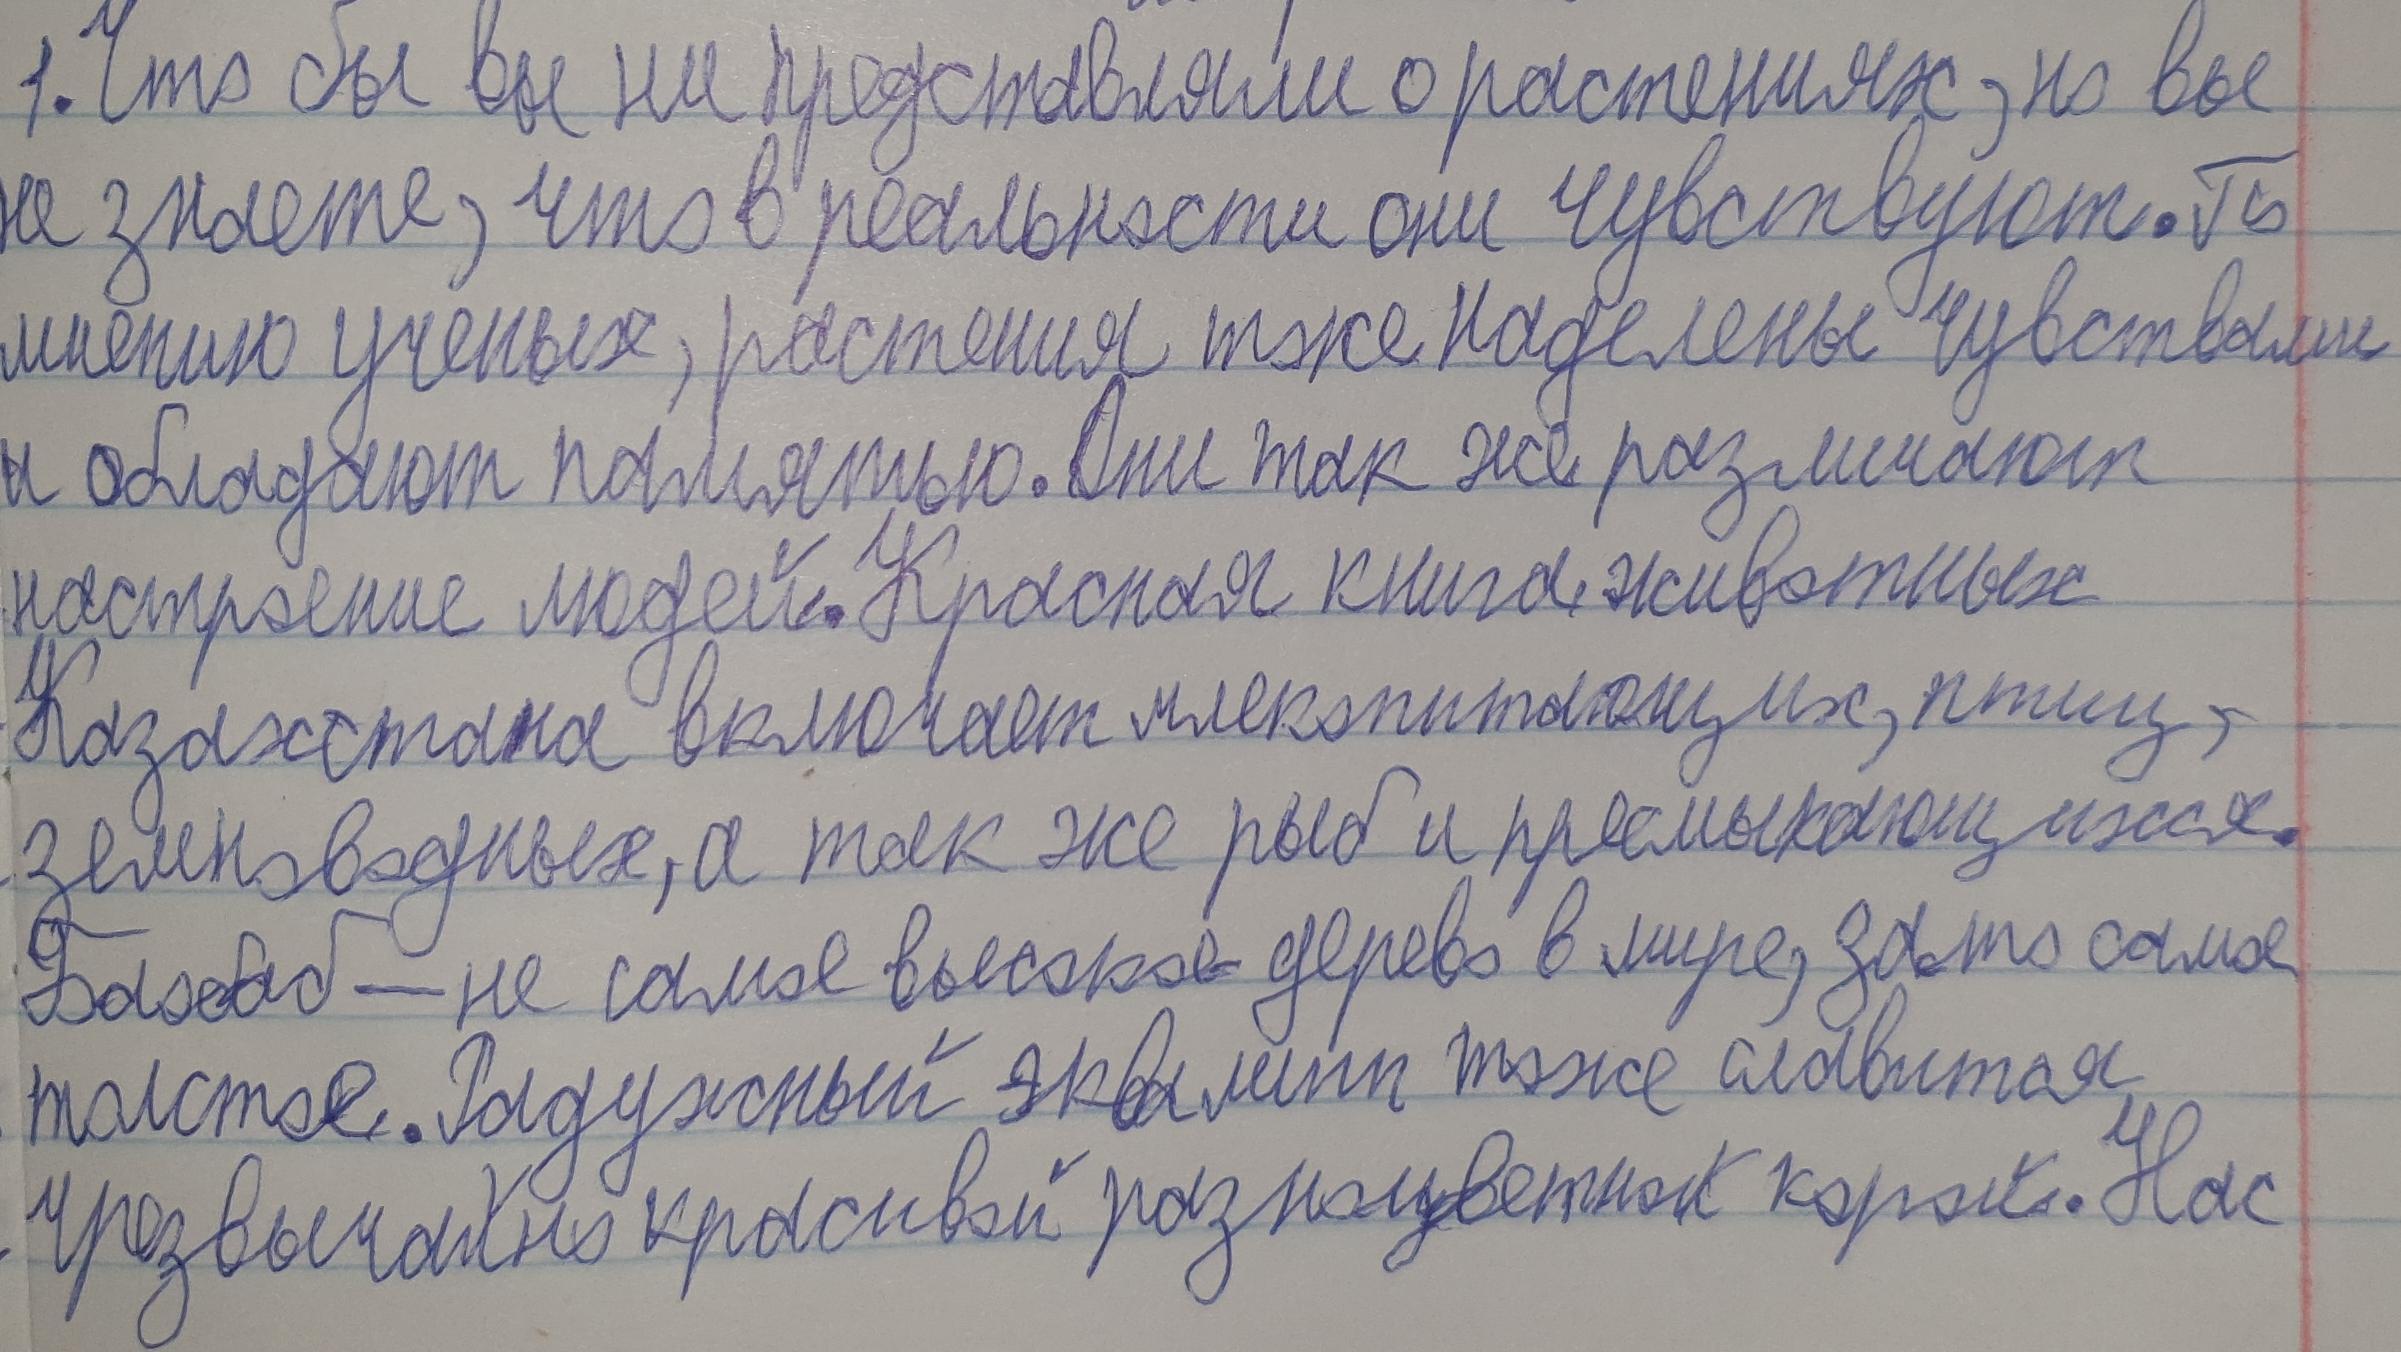 1. Что бы вы ни представляли о растениях, но вы
не знаете, что в реальности они чувствуют. По
мнению ученых, растения тоже наделены чувствами
и обладают памятью. Они так же различают
настроение людей. Красная книга животных
Казахстана включает млекопитающих, птиц,
земноводных, а так же рыб и пресмыкающихся.
Баобаб — не самое высокое дерево в мире, за то самое
толстое. Радужный эквалипт тоже славится
чрезвычайно красивой разноцветной корой. Нас